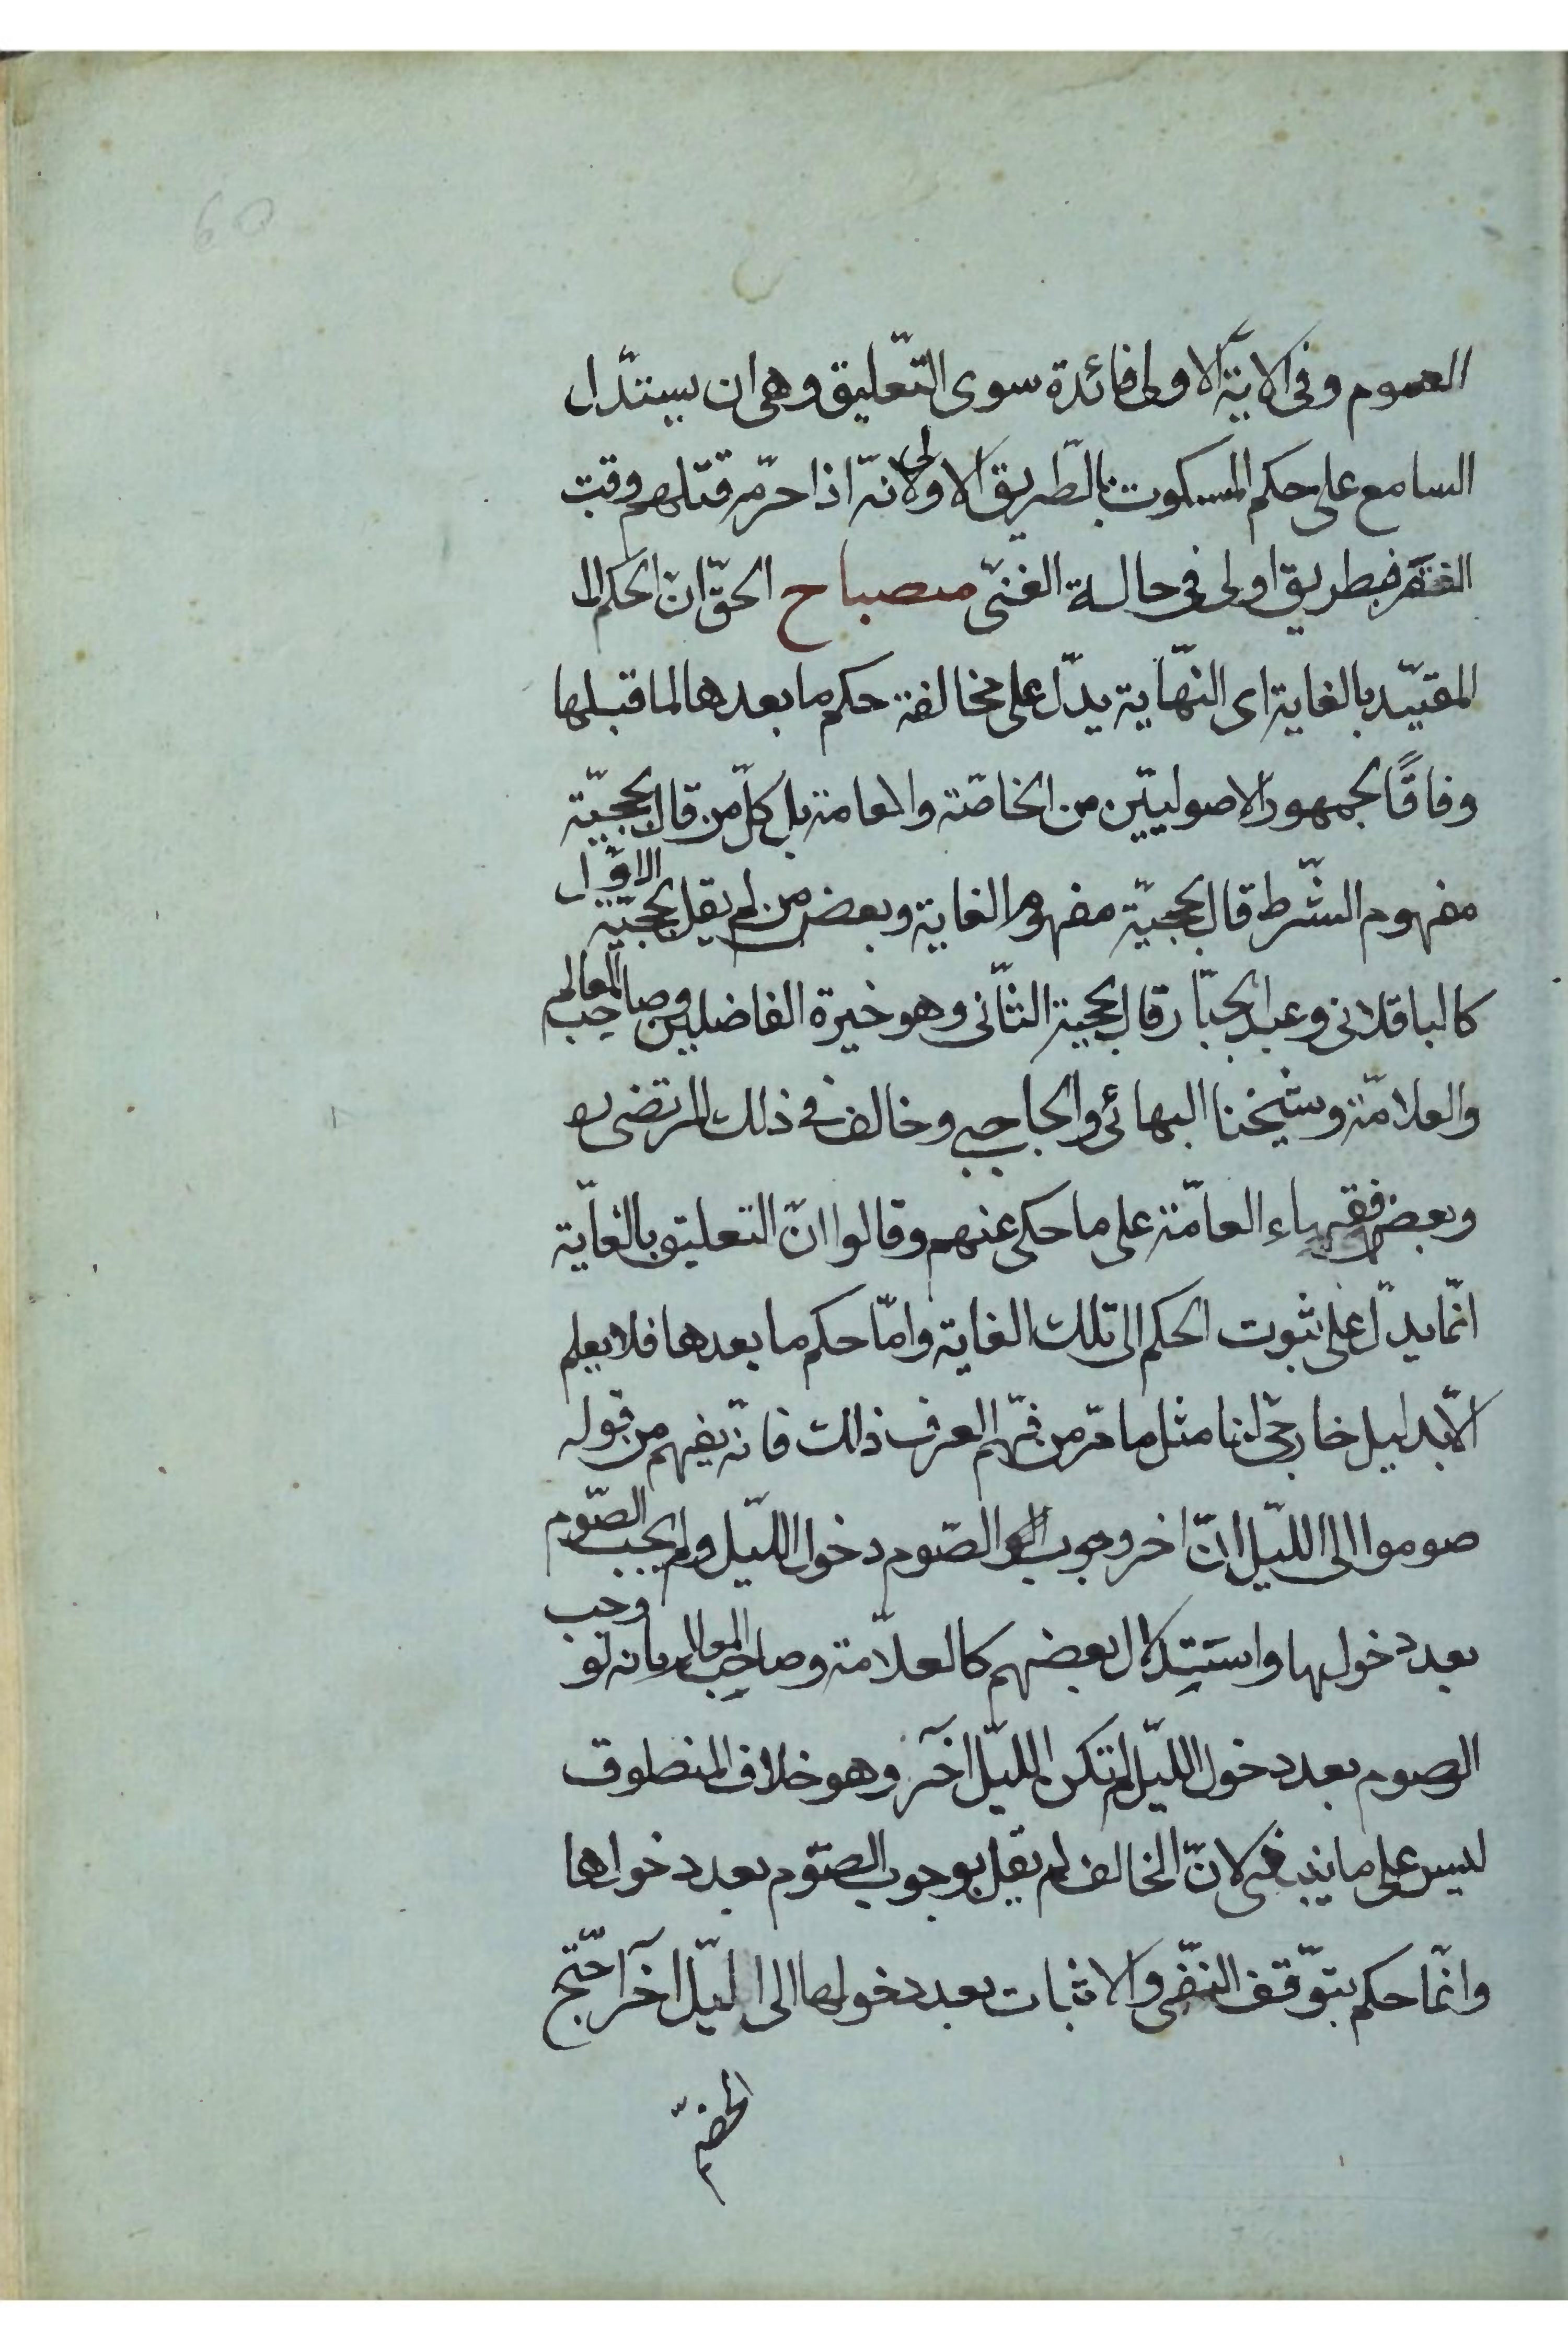 العموم وفى الاية الاولى فائدة سوى التّعليق وهى ان يستدّل
السامع على حكم المسكوت بالطّريق الاولى لانّه اذا حرّم قتلهم وقت
الفقر فبطريق اولى فى حالة الغنى مصباح الحقّ انّ الحكم الـ
المقيّد بالغاية اى النّهاية يدّل على مخالفة حكم ما بعدها لما قبلها
وفاقًا لجمهور الاصوليّين من الخاصّة والعامة بل كلّ من قال بحجيّة
مفهوم الشّرط قال بحجيّة مفهوم الغاية وبعض من لم يقل بحجيّة الاوّل
كالباقلانى وعبد الجبّار قال بحجية الثّانى وهو خيرة الفاضلين وصاحب المعالم
والعلامّة وشيخنا البهائى والحاجبى وخالف فى ذلك المرتضى ره
وبعض فقهاء العامّة على ما حكى عنهم وقالوا انّ التعليق بالغاية
انّما يدّل على ثبوت الحكم الى تلك الغاية وامّا حكم ما بعدها فلا يعلم
الّا بدليل خارجى لنا مثل ما مرّ من فهم العرف ذلك فانّه يفهم من قوله
صوموا الى اللّيل انّ اخر وجوب الصّوم دخول اللّيل ولم يجب الصّوم
بعد دخولها واستدلال بعضهم كالعلاّمة وصاحب المعالم بانه لو وجب
الصوم بعد دخول اللّيل لم تكن اللّيل آخر وهو خلاف المنطوق
ليس على ما ينبغى لانّ المخالف لم يقل بوجوب الصّوم بعد دخولها
وانّما حكم بتوّقف النفّى والاثبات بعد دخولها الى دليل آخر احتّج
الخصم